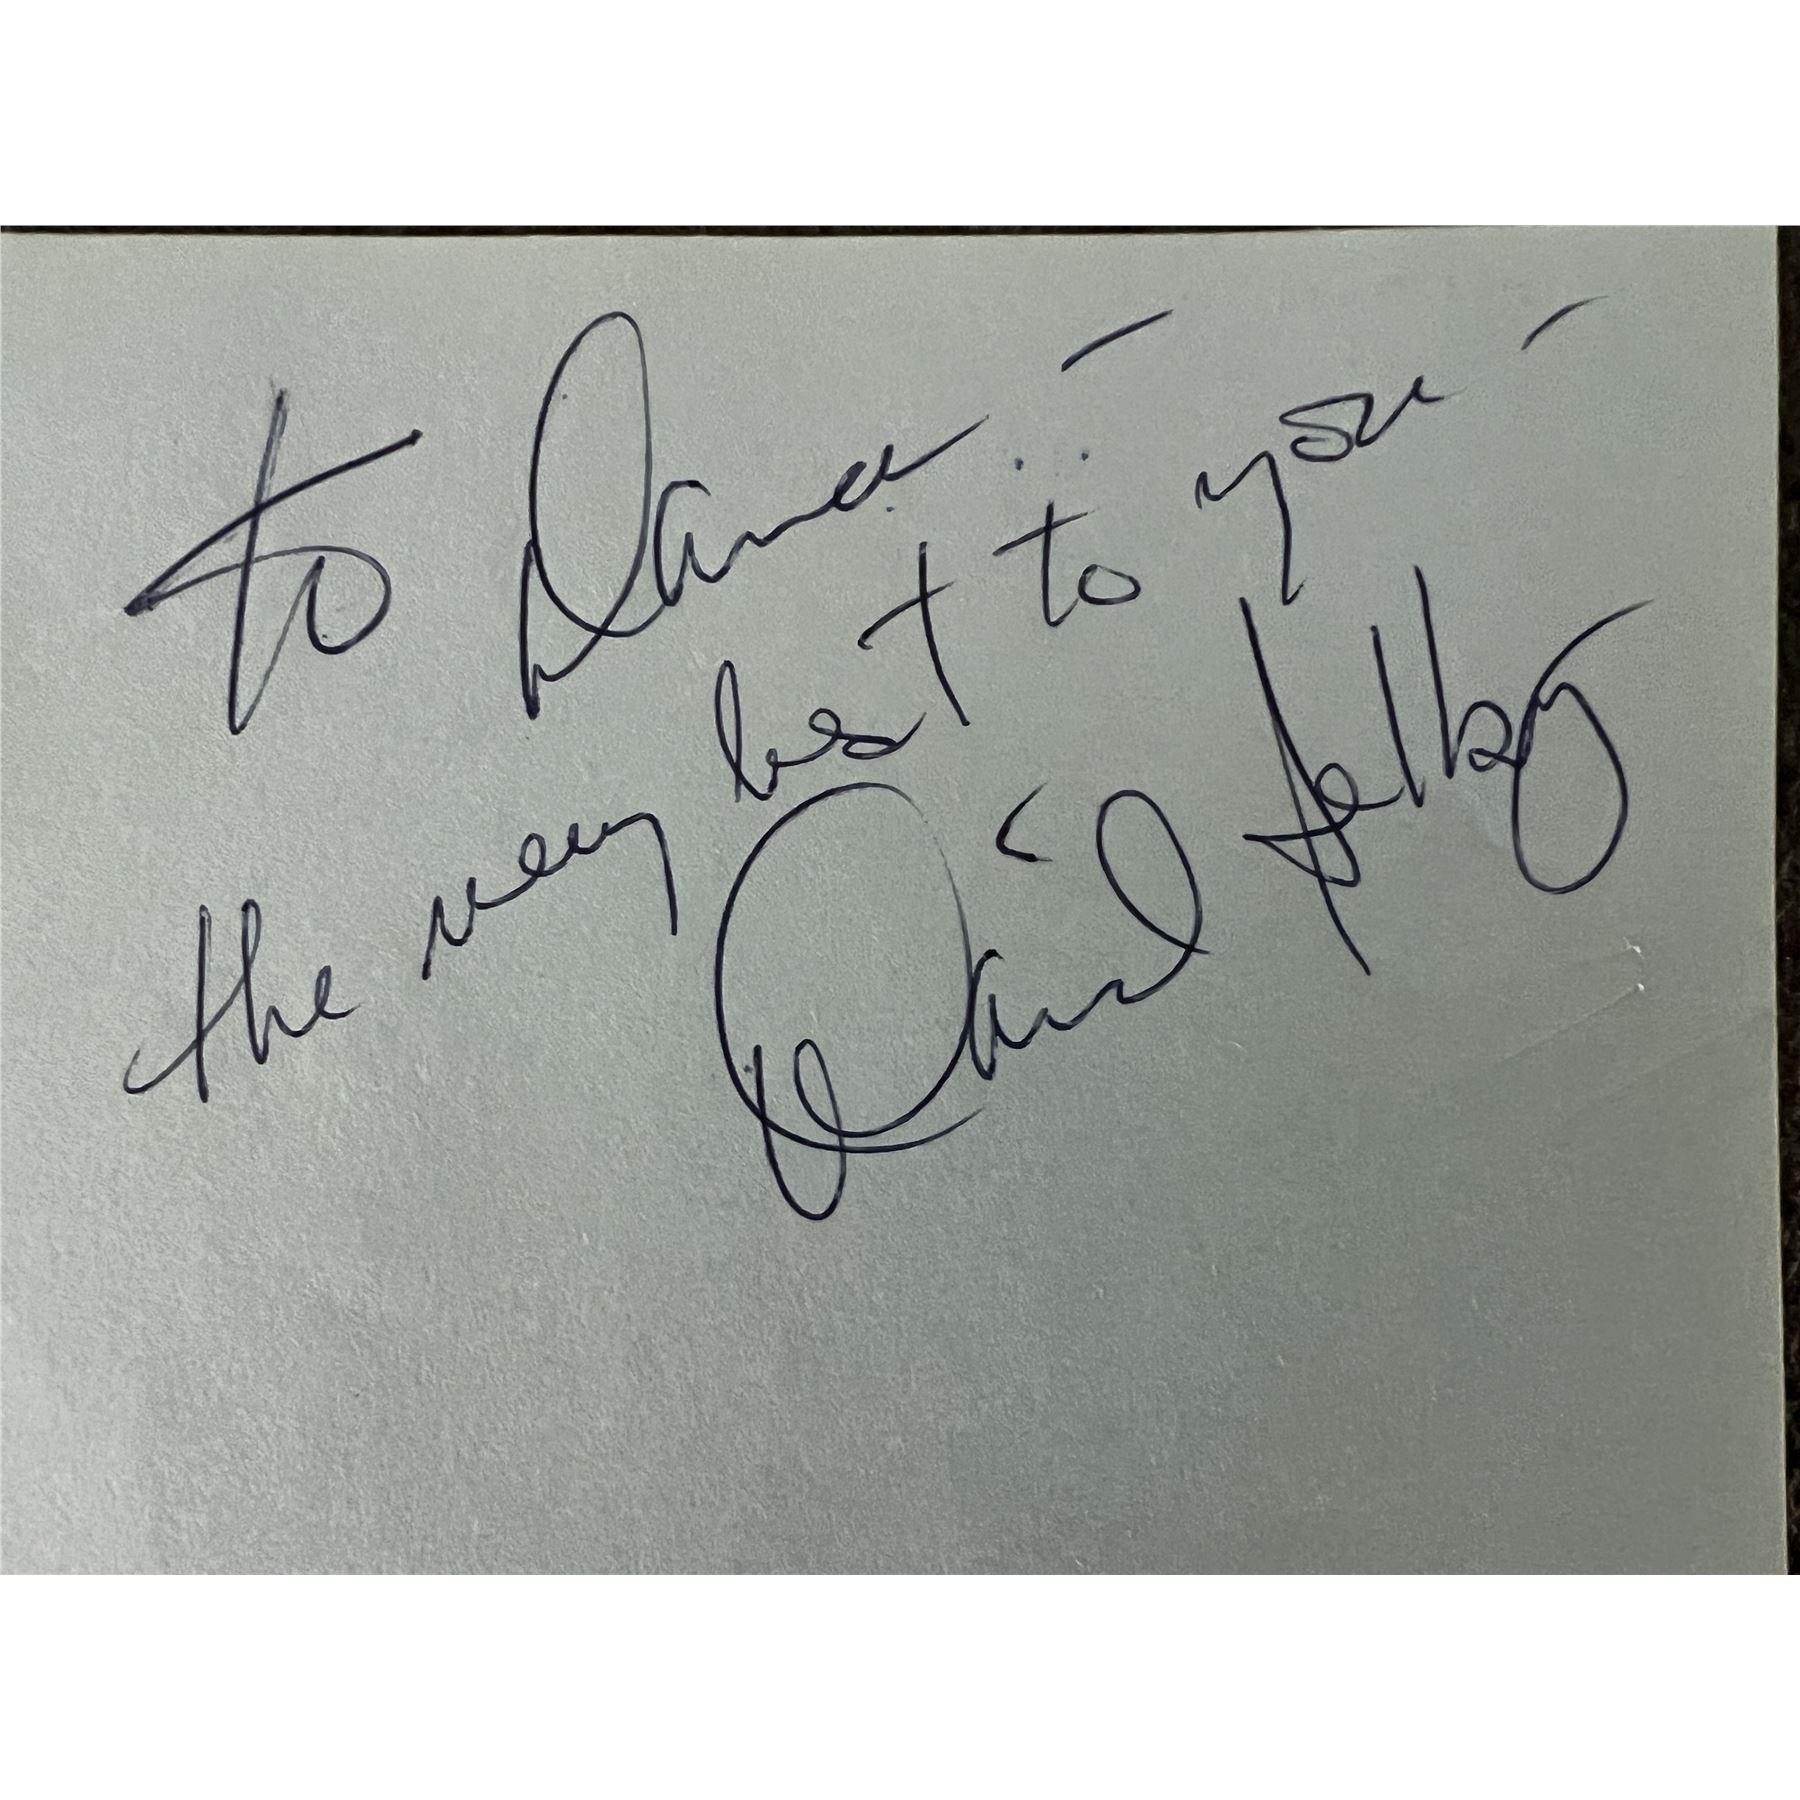 to Dana -
the very best to you -
David Selby